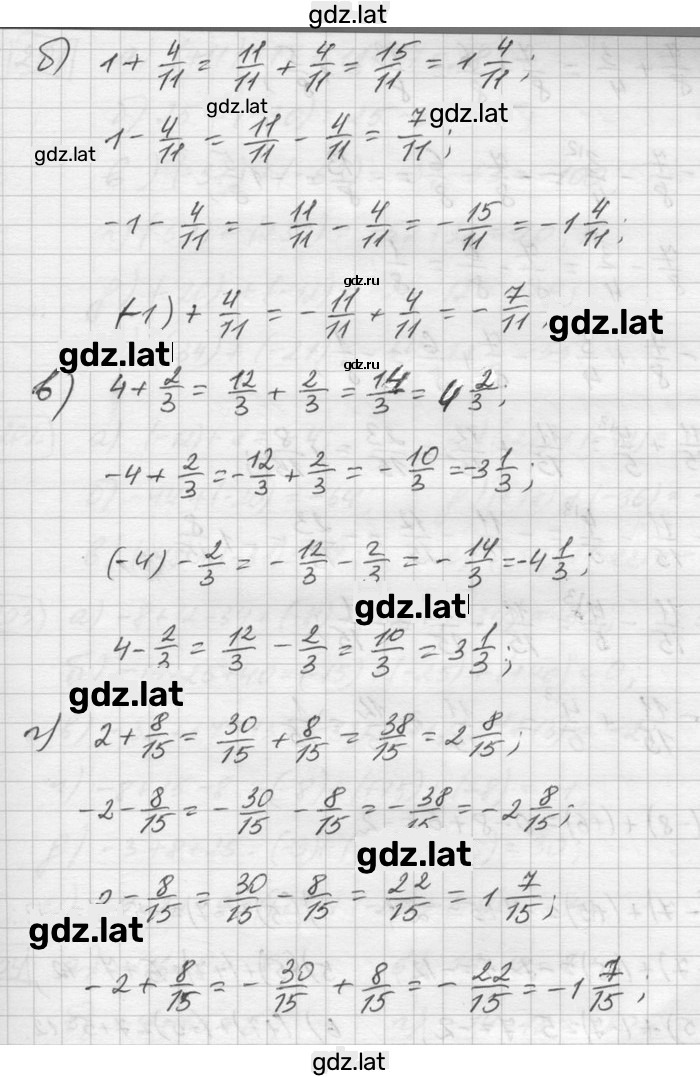 gdz.lat
б) 1 + 4/11 = 11/11 + 4/11 = 15/11 = 1 4/11;
gdz.lat
gdz.lat
gdz.lat
1 - 4/11 = 11/11 - 4/11 = 7/11;
-1 - 4/11 = - 11/11 - 4/11 = - 15/11 = -1 4/11;
gdz.ru
(-1) + 4/11 = - 11/11 + 4/11 = - 7/11;
gdz.lat
gdz.lat
в) 4 + 2/3 = 12/3 + 2/3 = 14/3 = 4 2/3;
-4 + 2/3 = - 12/3 + 2/3 = - 10/3 = -3 1/3;
(-4) - 2/3 = - 12/3 - 2/3 = - 14/3 = -4 1/3;
gdz.lat
4 - 2/3 = 12/3 - 2/3 = 10/3 = 3 1/3;
gdz.lat
г) 2 + 8/15 = 30/15 + 8/15 = 38/15 = 2 8/15;
-2 - 8/15 = - 30/15 - 8/15 = - 38/15 = -2 8/15;
gdz.lat
2 - 8/15 = 30/15 - 8/15 = 22/15 = 1 7/15;
gdz.lat
-2 + 8/15 = - 30/15 + 8/15 = - 22/15 = -1 7/15;
gdz.lat